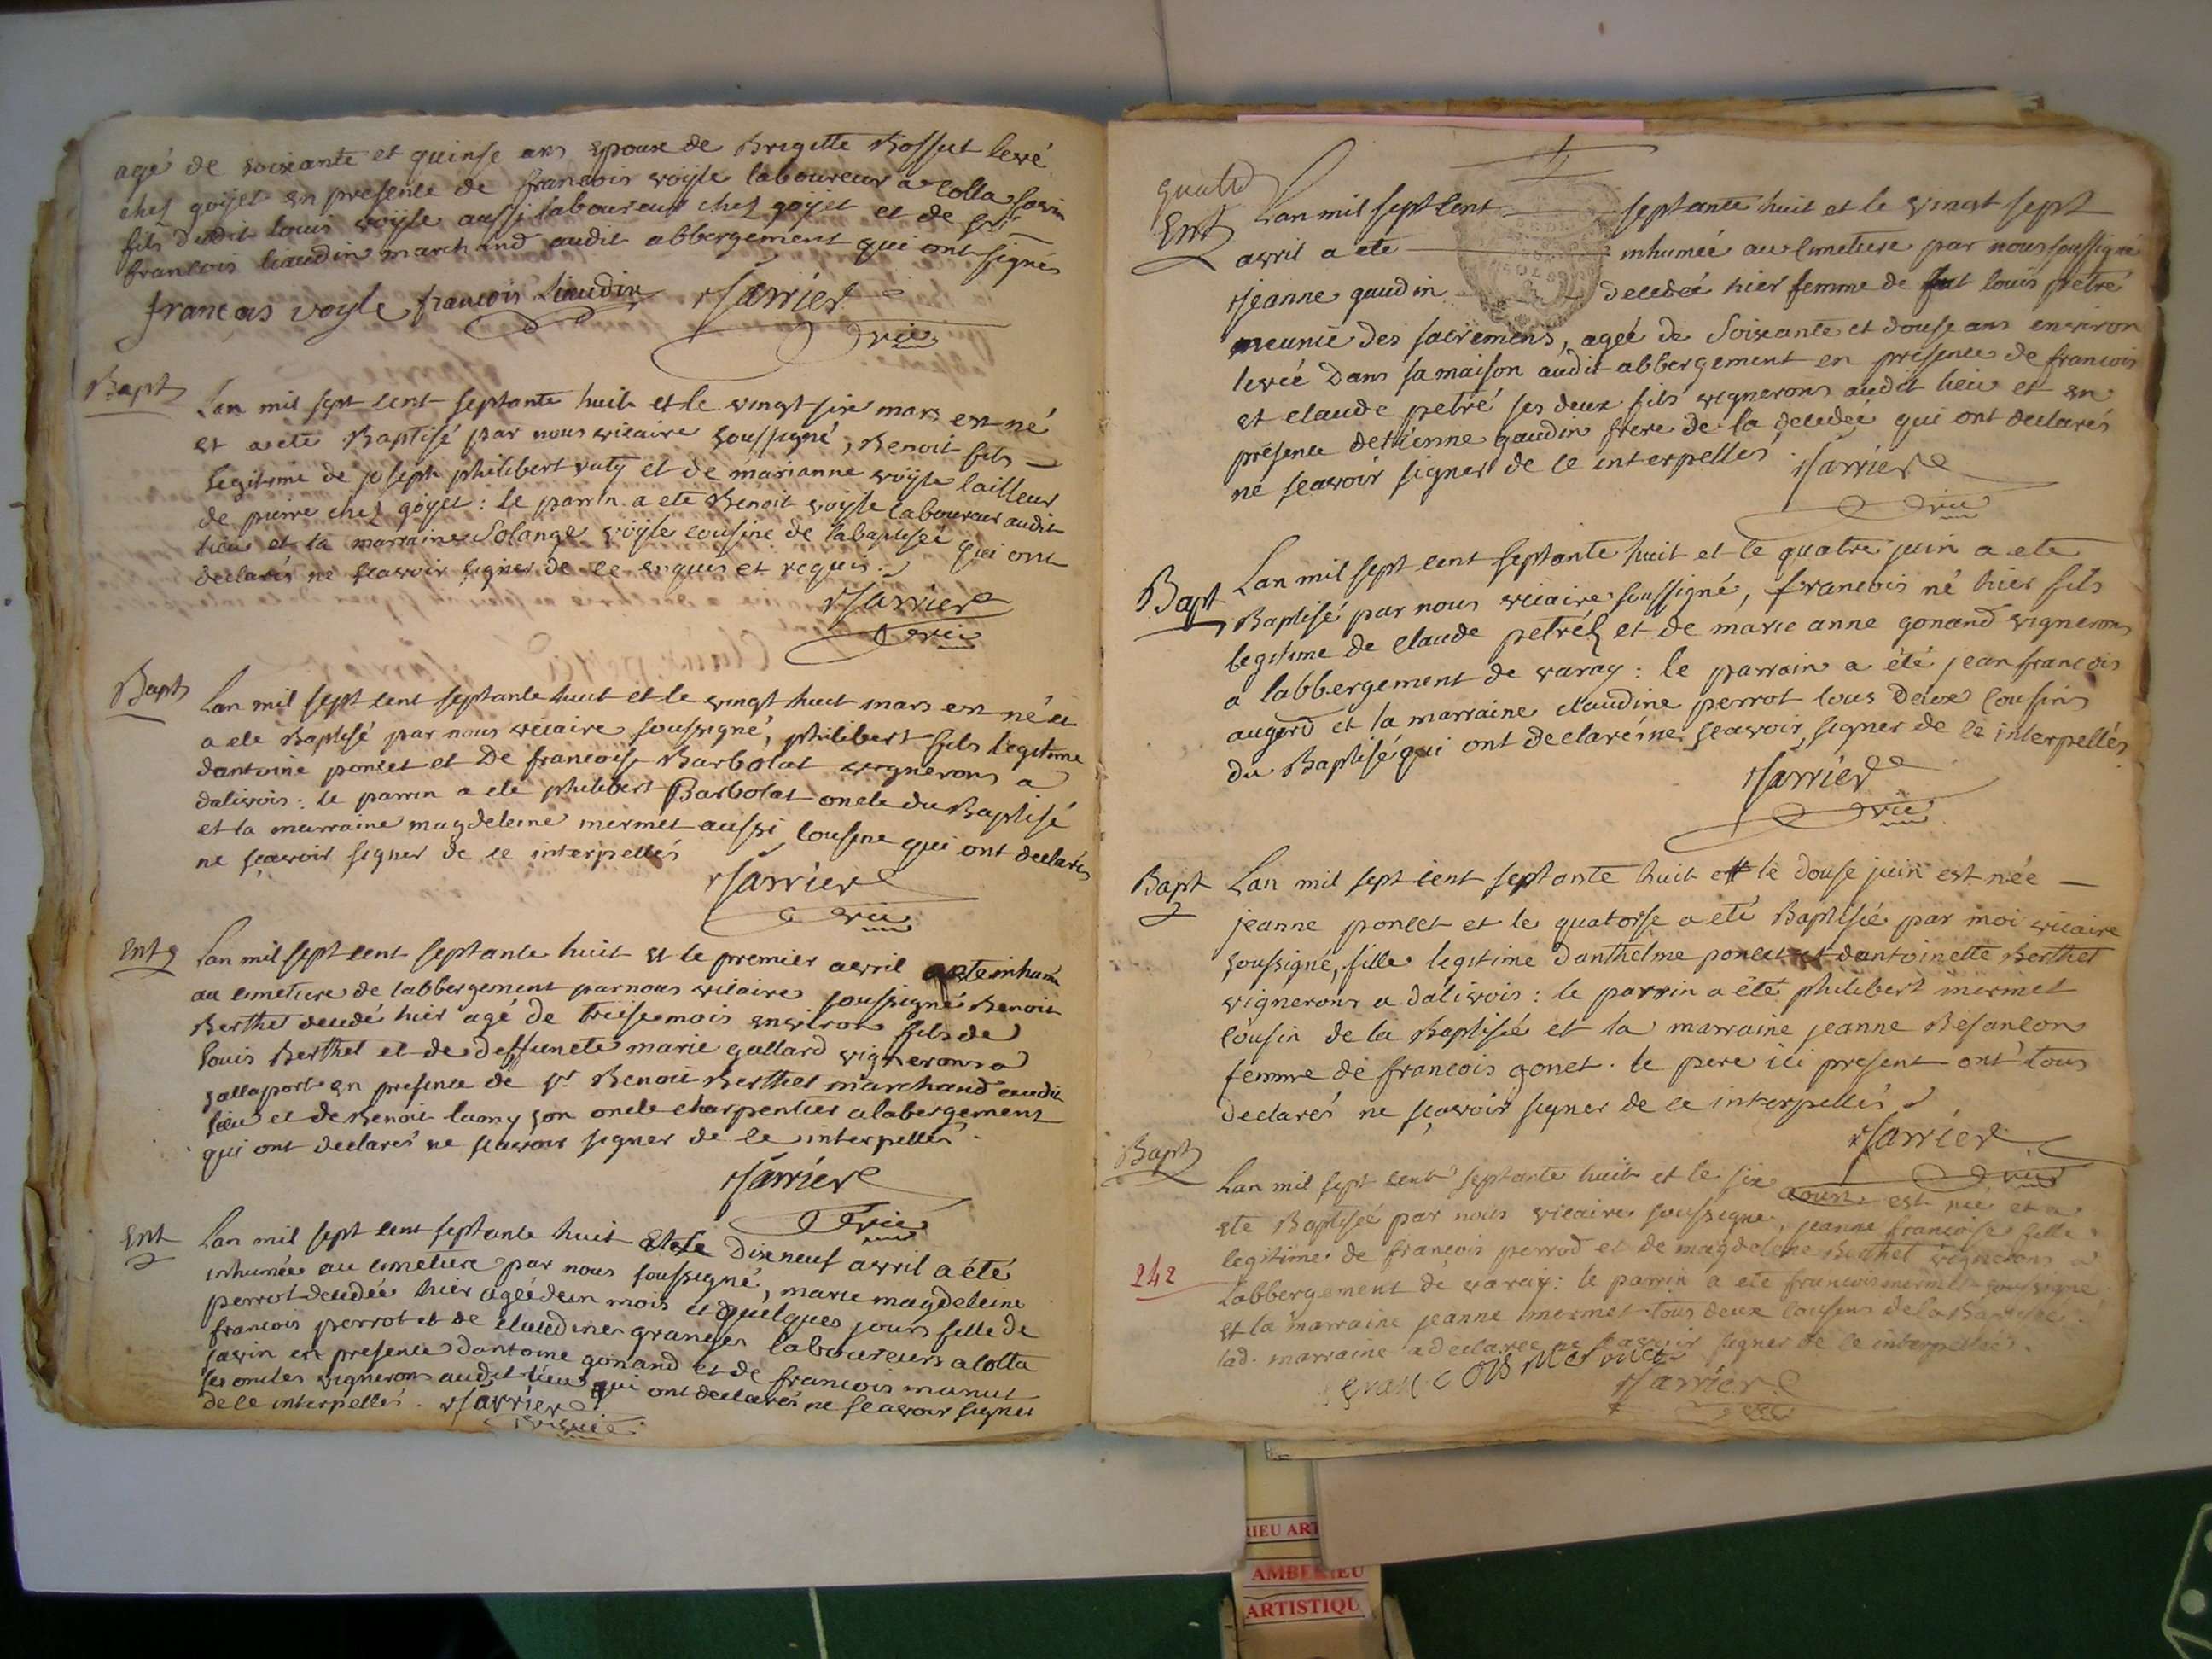 agé de soixante et quinse ans epoux de Brigitte Bossut levé
chez goÿet en presence de francois voÿle laboureur a Colla savin
fils dudit louis voÿle aussi laboureur chez goyet et de Sr
francois liaudin marchand audit abbergement qui ont signés
francois voyle francois Liaudin Jarrier
vic
Bapt
Lan mil sept cent septante huit et le vingt six mars est né
et a ete Baptisé par nous vicaire soussigné, Benoit fils
legitime de joseph philibert et de marianne voÿle tailleur
de pierre chez goÿet : le parrin a ete Benoit voÿle laboureur audit
lieu et la marraine Solange voÿle cousine de la baptisée qui ont
declarés ne sçavoir signer de ce enquis et requis.
Jarrier
vic
Bapt
Lan mil sept cent septante huit et le vingt huit mars est né et
a ete Baptisé par nous vicaire soussigné, philibert fils legitime
dantoine poncet et De francoise Barbolat vignerons a
dalivois : le parrin a ete philibert Barbolat oncle du Baptisé
et la marraine magdeleine mermet aussi cousine qui ont declarés
ne sçavoir signer de ce interpellés
Jarrier
vic
Ent
Lan mil sept cent septante huit et le premier avril a ete inhumé
au cimetiere de labbergement par nous vicaire soussigné Benoit
Berthet decedé hier agé de treise mois environ fils de
louis Berthet et de deffuncte marie gallard vignerons a
sallaport en presence de sr Benoit Berthet marchand audit
lieu et de Benoit lamy son oncle charpentier a labergement
qui ont declarés ne sçavoir signer de ce interpellés.
Jarrier
vic
Ent
Lan mil sept cent septante huit et le dix neuf avril a été
inhumée au cimetiere par nous soussigné, marie magdeleine
perrot decedée hier agée dun mois et quelques jours fille de
francois perrot et de Claudine granger laboureurs a Colla
savin en presence dantoine gonand et de francois manut
ses oncles vignerons audit lieu qui ont declarés ne sçavoir signer
de ce interpellés. Jarrier
vic
Ent
Lan mil sept cent septante huit et le vingt sept
avril a ete inhumée au cimetiere par nous soussigné
Jeanne gaudin decedée hier femme de louis petré
meunie des sacremens, agée de soixante et douse ans environ
levée Dans sa maison audit abbergement en présence de francois
et claude petré ses deux fils vignerons audit lieu et en
présence detienne gaudin frere de la decedée qui ont declarés
ne sçavoir signer de ce interpellés Jarrier
vic
Bapt
Lan mil sept cent septante huit et le quatre juin a ete
Baptisé par nous vicaire soussigné, francois né hier fils
legitime de claude petréz et de marie anne gonand vignerons
a labbergement de varay : le parrain a été jean francois
augerd et la marraine claudine perrot tous deux cousins
du Baptisé qui ont declarés ne sçavoir signer de ce interpellés
Jarrier
vic
Bapt
Lan mil sept cent septante huit et le douse juin est née
jeanne poncet et le quatorse a eté Baptisée par moi vicaire
soussigné, fille legitime danthelme poncet et dantoinette Berthet
vignerons a dalivois : le parrin a été philibert mermet
cousin de la Baptisée et la marraine jeanne Besancon
femme de francois gonet. le pere ici present ont tous
declarés ne sçavoir signer de ce interpellés
Jarrier
vic
Bapt
Lan mil sept cent septante huit et le six aoust est née et a
ete Baptisée par nous vicaire soussigné, jeanne francoise fille
legitime de francois perrod et de magdelene Berthet vignerons a
242
Labbergement de varay : le parrin a ete francois mermet soussigné
et la marraine jeanne mermet tous deux cousins de la Baptisée.
lad. marraine a declaree ne sçavoir signer de ce interpellée.
francois mermet
Jarrier
vic
AMBERIEU
ARTISTIQU